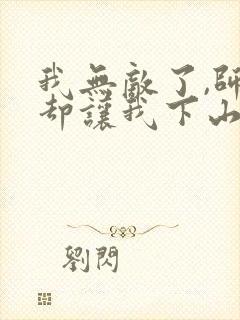 我無敵了,師
却讓我下山
劉閃